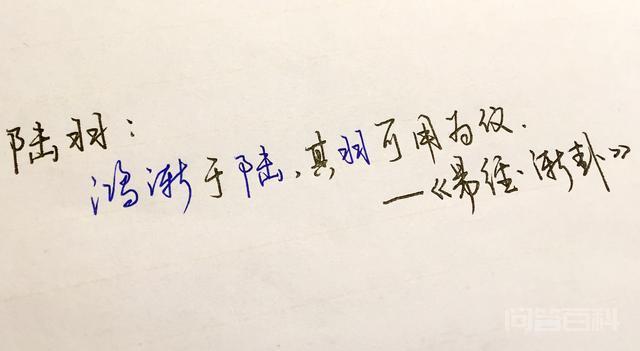 陆羽：
鸿渐于陆，其羽可用为仪．
—《易经·渐卦》
问答百科